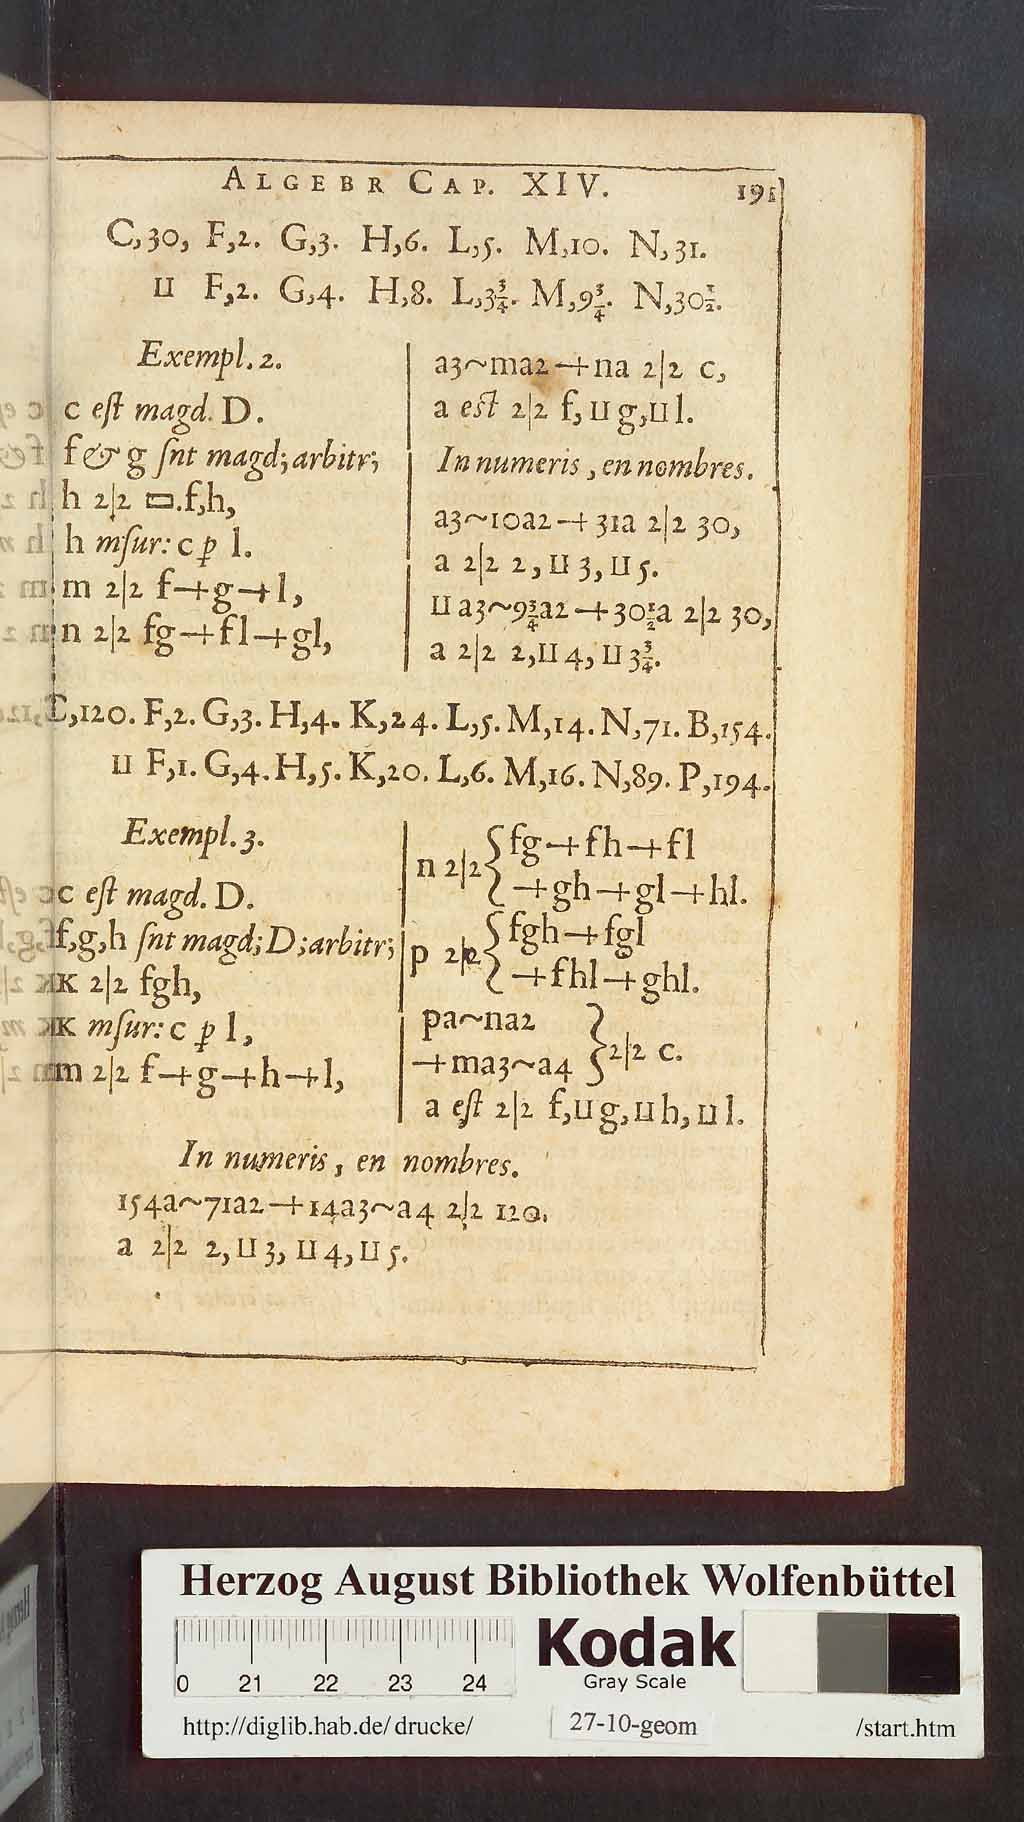 ALGEBR CAP. XIV. 191
C,30, F,2. G,3. H,6. L,5. M,10. N,31.
⊔ F,2. G,4. H,8. L,3¾. M,9¾. N,30½.
Exempl. 2.
c eſt magd. D.
f & g ſnt magd; arbitr;
h 2|2 ▭.f,h,
h mſur: c ꝑ l.
m 2|2 f+g+l,
n 2|2 fg+fl+gl,
a3~ma2+na 2|2 c,
a eſt 2|2 f, ⊔ g, ⊔ l.
In numeris, en nombres.
a3~10a2+31a 2|2 30,
a 2|2 2, ⊔ 3, ⊔ 5.
⊔ a3~9¾a2+30½a 2|2 30,
a 2|2 2, ⊔ 4, ⊔ 3¾.
C,120. F,2. G,3. H,4. K,24. L,5. M,14. N,71. B,154.
⊔ F,1. G,4. H,5. K,20. L,6. M,16. N,89. P,194.
Exempl. 3.
c eſt magd. D.
f,g,h ſnt magd; D; arbitr;
K 2|2 fgh,
K mſur: c ꝑ l,
m 2|2 f+g+h+l,
n 2|2 { fg+fh+fl
+gh+gl+hl.
p 2|2 { fgh+fgl
+fhl+ghl.
pa~na2
+ma3~a4 } 2|2 c.
a eſt 2|2 f, ⊔ g, ⊔ h, ⊔ l.
In numeris, en nombres.
154a~71a2+14a3~a4 2|2 120.
a 2|2 2, ⊔ 3, ⊔ 4, ⊔ 5.
Herzog August Bibliothek Wolfenbüttel
0 21 22 23 24
Kodak
Gray Scale
http://diglib.hab.de/drucke/ 27-10-geom /start.htm